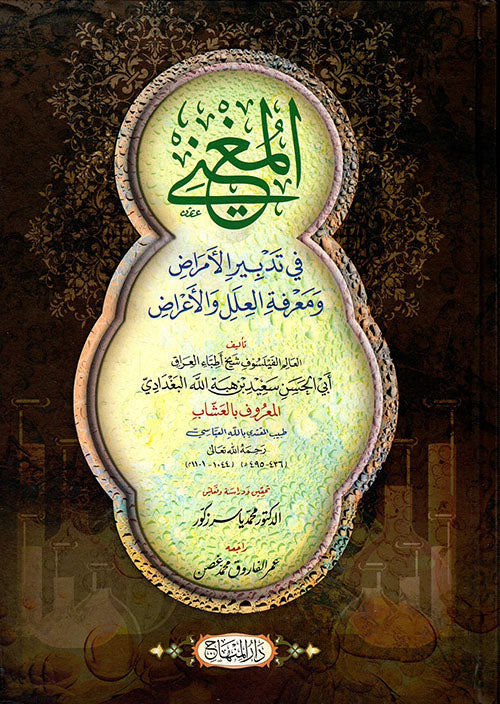 المُغْنِي
في تَدْبِيرِ الأَمرَاضِ
وَمَعْرِفَةِ العِلَلِ وَالأَعْرَاضِ
تأليف
العالم الفيلسوف شيخ أطباء العراق
أبي الحسن سعيد بن هبة الله البغدادي
المعروف بالعشاب
طبيب المقتدي بالله العباسي
رحمه الله تعالى
(٤٣٦-٤٩٥ هـ) (١٠٤٤-١١٠١م)
تحقيق ودراسة وتعليق
الدكتور محمد ياسر زكور
راجعه
عمر الفاروق محمد غصن
دار المنهاج